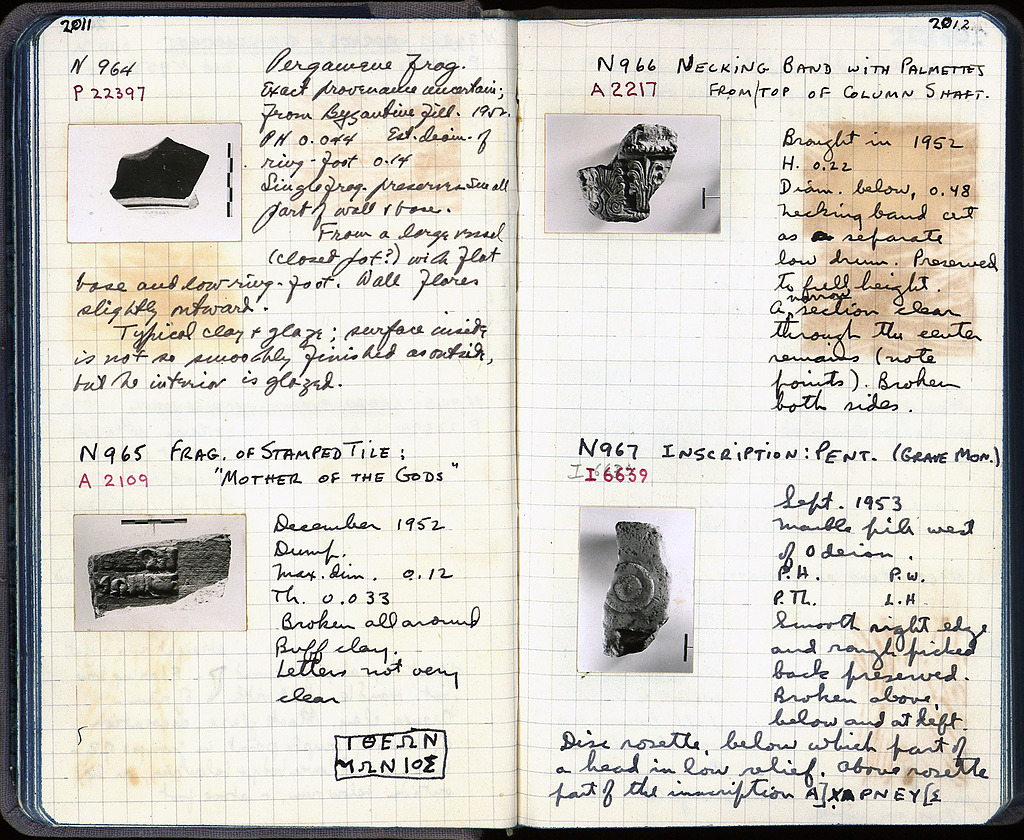 2011
N 964
P 22397
Pergamene Frag.
Exact provenance uncertain;
From Byzantine Fill. 1952.
PH 0.044 Est. diam. of
ring-foot 0.14
Single frag. preserves small
part of wall & base.
From a large vessel
(closed pot?) with flat
base and low ring-foot. Wall flares
slightly outward.
Typical clay + glaze; surface inside
is not so smoothly finished as outside,
but the interior is glazed.
N 965 FRAG. OF STAMPED TILE:
A 2109 "MOTHER OF THE GODS"
December 1952
Dump.
Max. dim. 0.12
Th. 0.033
Broken all around
Buff clay.
Letters not very
clear
ΙΘΕΩΝ
ΜΩΝΙΟΣ
2012
N966 NECKING BAND WITH PALMETTES
A 2217 FROM TOP OF COLUMN SHAFT.
Brought in 1952
H. 0.22
Diam. below, 0.48
Necking band cut
as separate
low drum. Preserved
to full height.
narrow
A section clear
through the center
remains (note
points). Broken
both sides.
N967 INSCRIPTION: PENT. (GRAVE MON.)
I 6639
Sept. 1953
Marble pile west
of Odeion.
P.H. P.W.
P.Th. L.H
Smooth right edge
and rough picked
back preserved.
Broken above,
below and at left.
Disc rosette, below which part of
a head in low relief. Above rosette
part of the inscription Α]ΧΑΡΝΕΥ[Σ